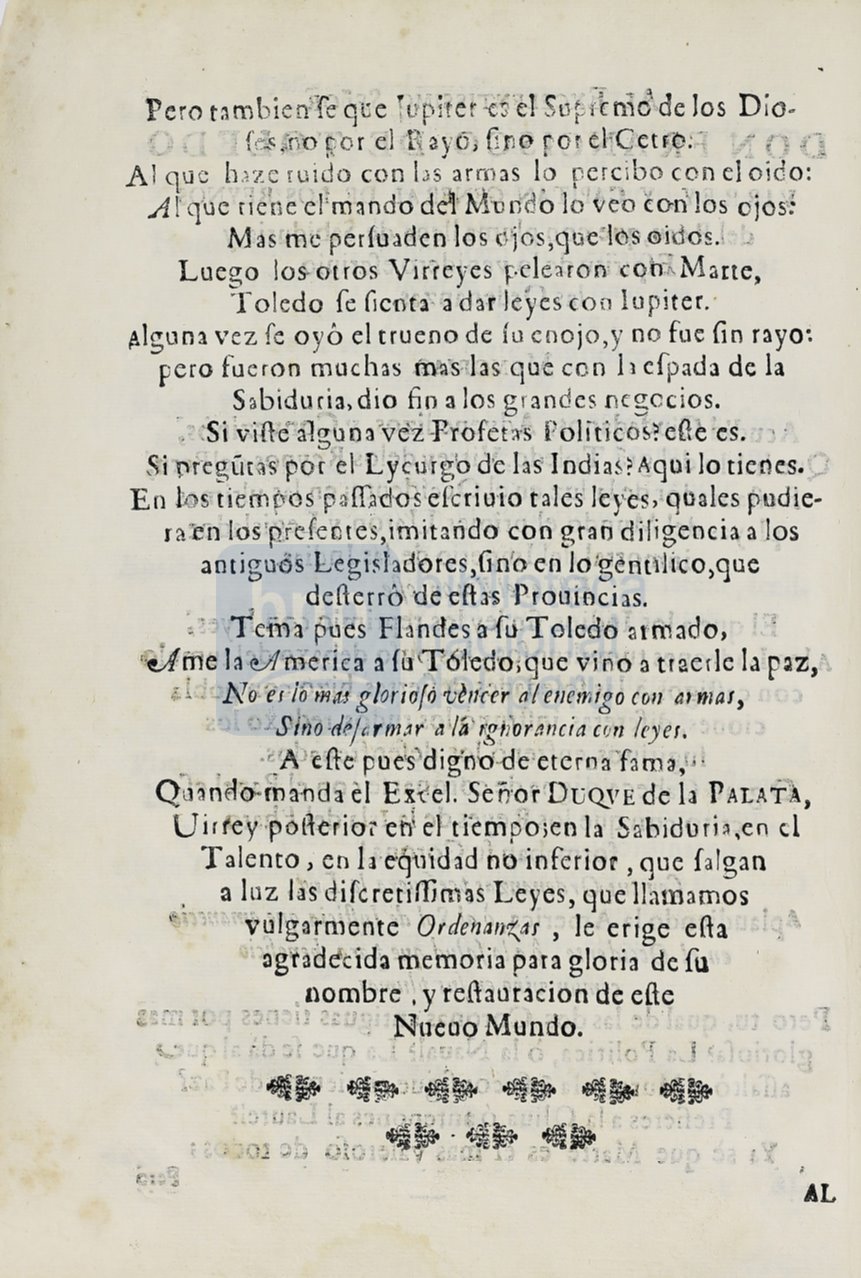 Pero tambien ſe que Iupiter es el Supremo de los Dio-
ſes, no por el Rayo, ſino por el Cetro.
Al que haze ruido con las armas lo percibo con el oido:
Al que tiene el mando del Mundo lo veo con los ojos:
Mas me perſuaden los ojos, que los oidos.
Luego los otros Virreyes pelearon con Marte,
Toledo ſe ſienta a dar leyes con Iupiter.
Alguna vez ſe oyô el trueno de ſu enojo, y no fue ſin rayo:
pero fueron muchas mas las que con la eſpada de la
Sabiduria, dio fin a los grandes negocios.
Si viſte alguna vez Profetas Politicos? eſte es.
Si pregūtas por el Lycurgo de las Indias? Aqui lo tienes.
En los tiempos paſſados eſcriuio tales leyes, quales pudie-
ra en los preſentes, imitando con gran diligencia a los
antiguos Legisladores, ſino en lo gentilico, que
deſterrô de eſtas Prouincias.
Tema pues Flandes a ſu Toledo armado,
Ame la America a ſu Toledo, que vino a traerle la paz,
No es lo mas glorioſo vencer al enemigo con armas,
Sino deſarmar a la ignorancia con leyes.
A eſte pues digno de eterna fama,
Quando manda el Excel. Señor DUQVE de la PALATA,
Uirrey poſterior en el tiempo; en la Sabiduria, en el
Talento, en la equidad no inferior, que ſalgan
a luz las diſcretiſſimas Leyes, que llamamos
vulgarmente Ordenanzas, le erige eſta
agradecida memoria para gloria de ſu
nombre, y reſtauracion de eſte
Nueuo Mundo.
AL